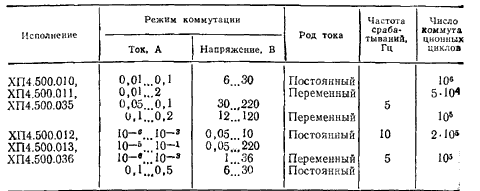 Исполнение Режим коммутации Род тока Частота сраба- тываний, Гц Число коммута ционных циклов
Ток, А Напряжение, В
ХП4.500.010, 0,01...0,1 6...30 Постоянный 10⁶
ХП4.500.011, 0,01...2 Переменный 5·10⁴
ХП4.500.035 0,05...0,1 30...220 5
0,1...0,2 12...120 Переменный 10⁵
ХП4.500.012, 10⁻⁶...10⁻³ 0,05...10 Постоянный 10 2·10⁵
ХП4.500.013, 10⁻⁵...10⁻¹ 0,05...220
ХП4.500.036 10⁻⁶...10⁻³ 1...36 Переменный 5 10⁵
0,1...0,5 6...30 Постоянный